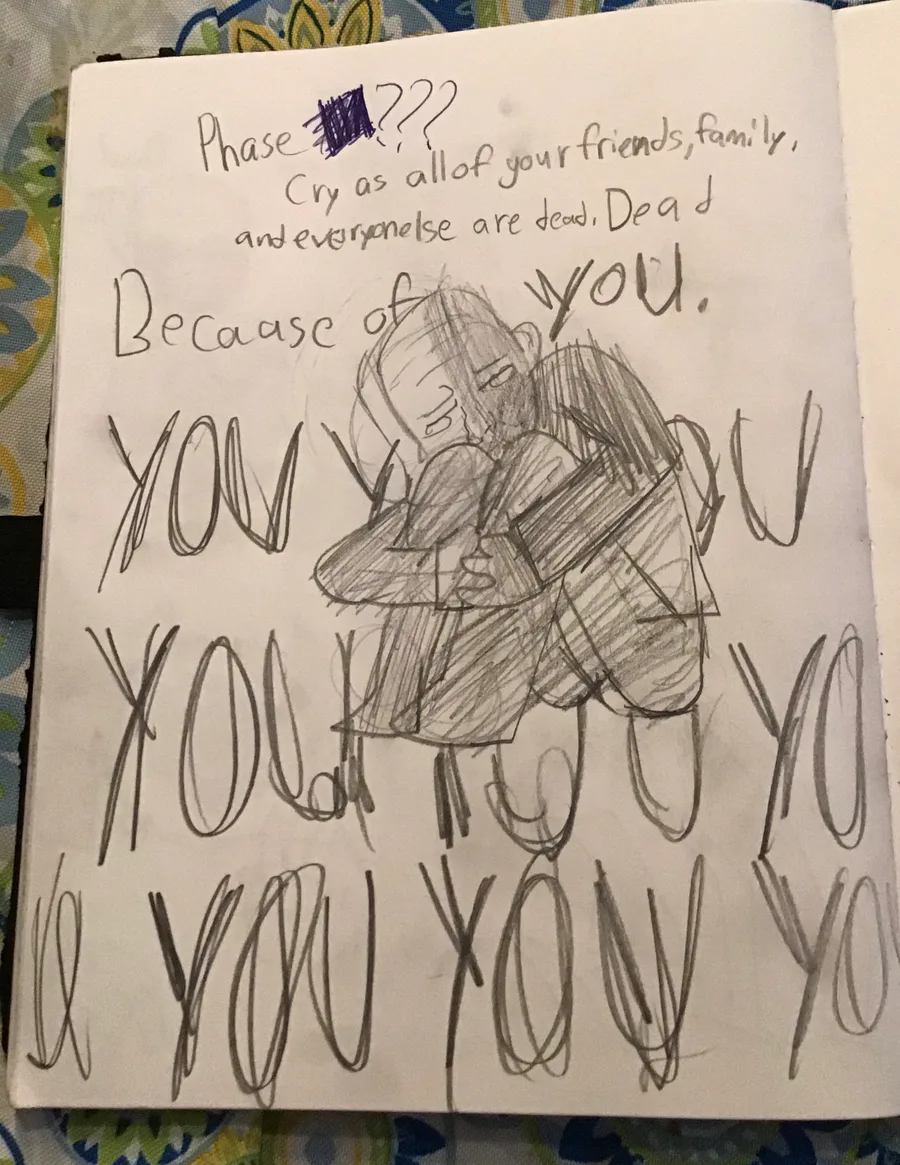 Phase ???
Cry as all of your friends, family,
and everyone else are dead. Dead
Because of you.
YOU Y OU
YOU YO
YOU YOU YO